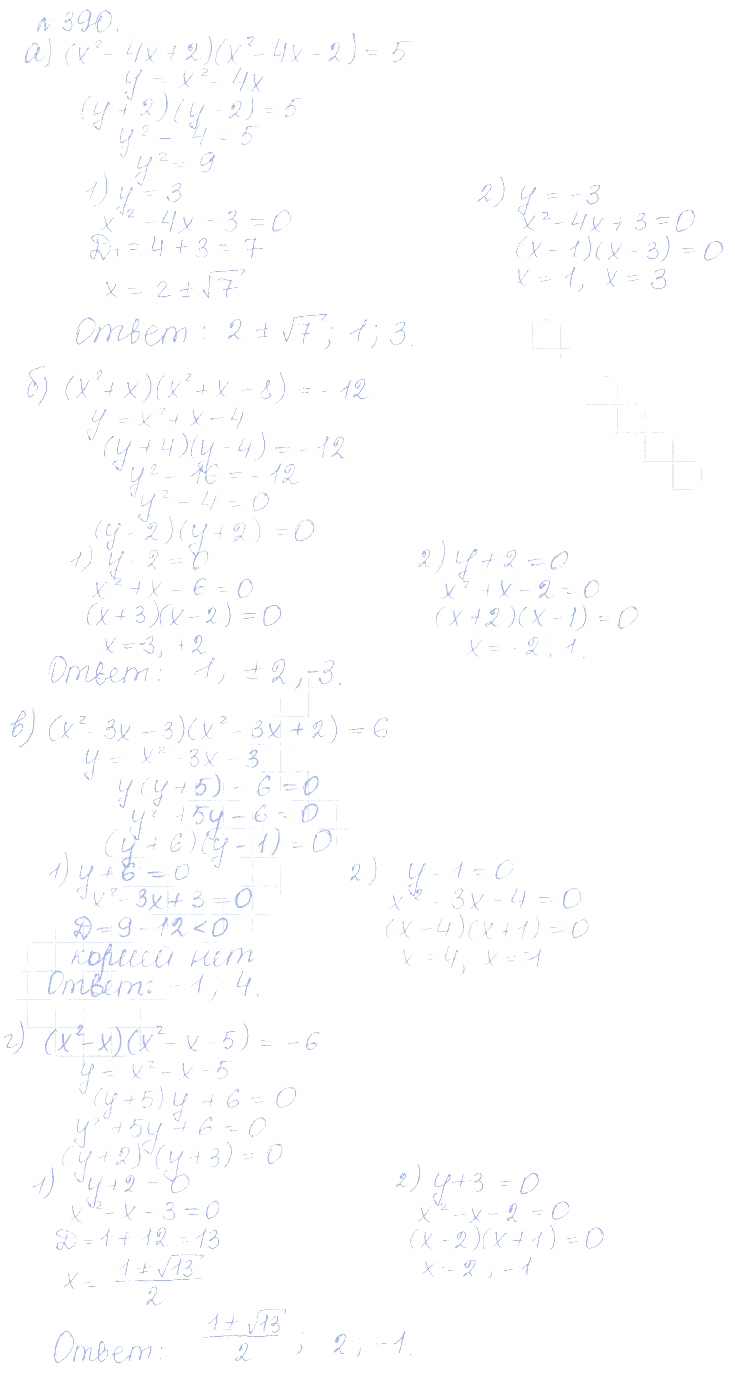 №390.
а) (x² - 4x + 2)(x² - 4x - 2) = 5
y = x² - 4x
(y + 2)(y - 2) = 5
y² - 4 = 5
y² = 9
1) y = 3
x² - 4x - 3 = 0
D₁ = 4 + 3 = 7
x = 2 ± √7
2) y = -3
x² - 4x + 3 = 0
(x - 1)(x - 3) = 0
x = 1, x = 3
Ответ: 2 ± √7; 1; 3.
б) (x² + x)(x² + x - 8) = -12
y = x² + x - 4
(y + 4)(y - 4) = -12
y² - 16 = -12
y² - 4 = 0
(y - 2)(y + 2) = 0
1) y - 2 = 0
x² + x - 6 = 0
(x + 3)(x - 2) = 0
x = -3, +2
2) y + 2 = 0
x² + x - 2 = 0
(x + 2)(x - 1) = 0
x = -2; 1.
Ответ: 1, ±2, -3.
в) (x² - 3x - 3)(x² - 3x + 2) = 6
y = x² - 3x - 3
y(y + 5) - 6 = 0
y² + 5y - 6 = 0
(y + 6)(y - 1) = 0
1) y + 6 = 0
x² - 3x + 3 = 0
D = 9 - 12 < 0
корней нет
2) y - 1 = 0
x² - 3x - 4 = 0
(x - 4)(x + 1) = 0
x = 4, x = -1
Ответ: -1; 4.
г) (x² - x)(x² - x - 5) = -6
y = x² - x - 5
(y + 5)y + 6 = 0
y² + 5y + 6 = 0
(y + 2)(y + 3) = 0
1) y + 2 = 0
x² - x - 3 = 0
D = 1 + 12 = 13
x = (1 ± √13)/2
2) y + 3 = 0
x² - x - 2 = 0
(x - 2)(x + 1) = 0
x = 2; -1
Ответ: (1 ± √13)/2; 2; -1.